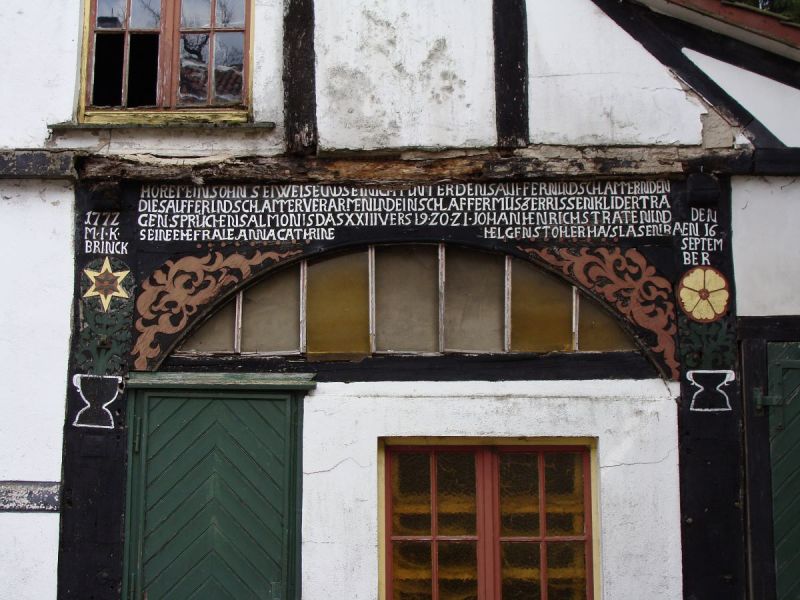 HOREMEINSOHNSEIWEISEUNDSEINICHTUNTERDENSAUFFERNUNDSCHLAMMERNDEN
DIESAUFFERUNDSCHLAMMERVERARMENUNDEINSCHLAFFERMUSZERRISSENKLIDERTRA
GEN·SPRUCHENSALMONISDASXXIIIVERS1920·21·JOHANHENRICHSTRATENUND
SEINEEHEFRAIEANNACATHRINE HELGENSTOHLERHABLASENBAEN16
1772
M·I·K·
BRINCK
DEN
SEPTEM
BER